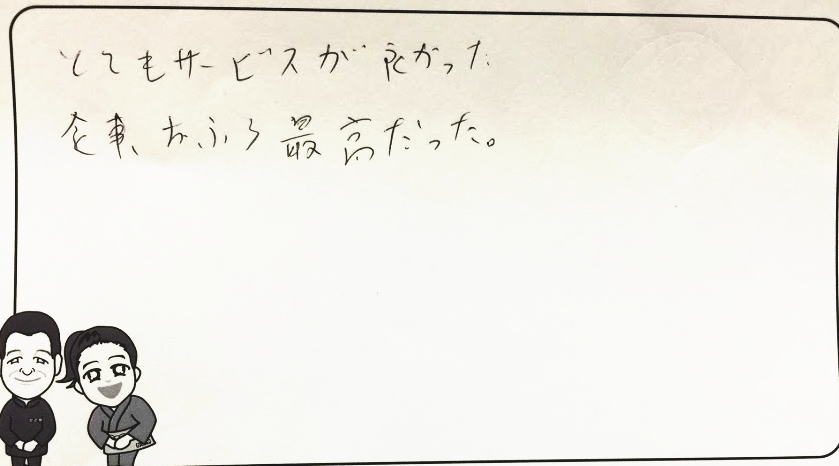 とてもサービスが良かった
食事、おふろ最高だった。